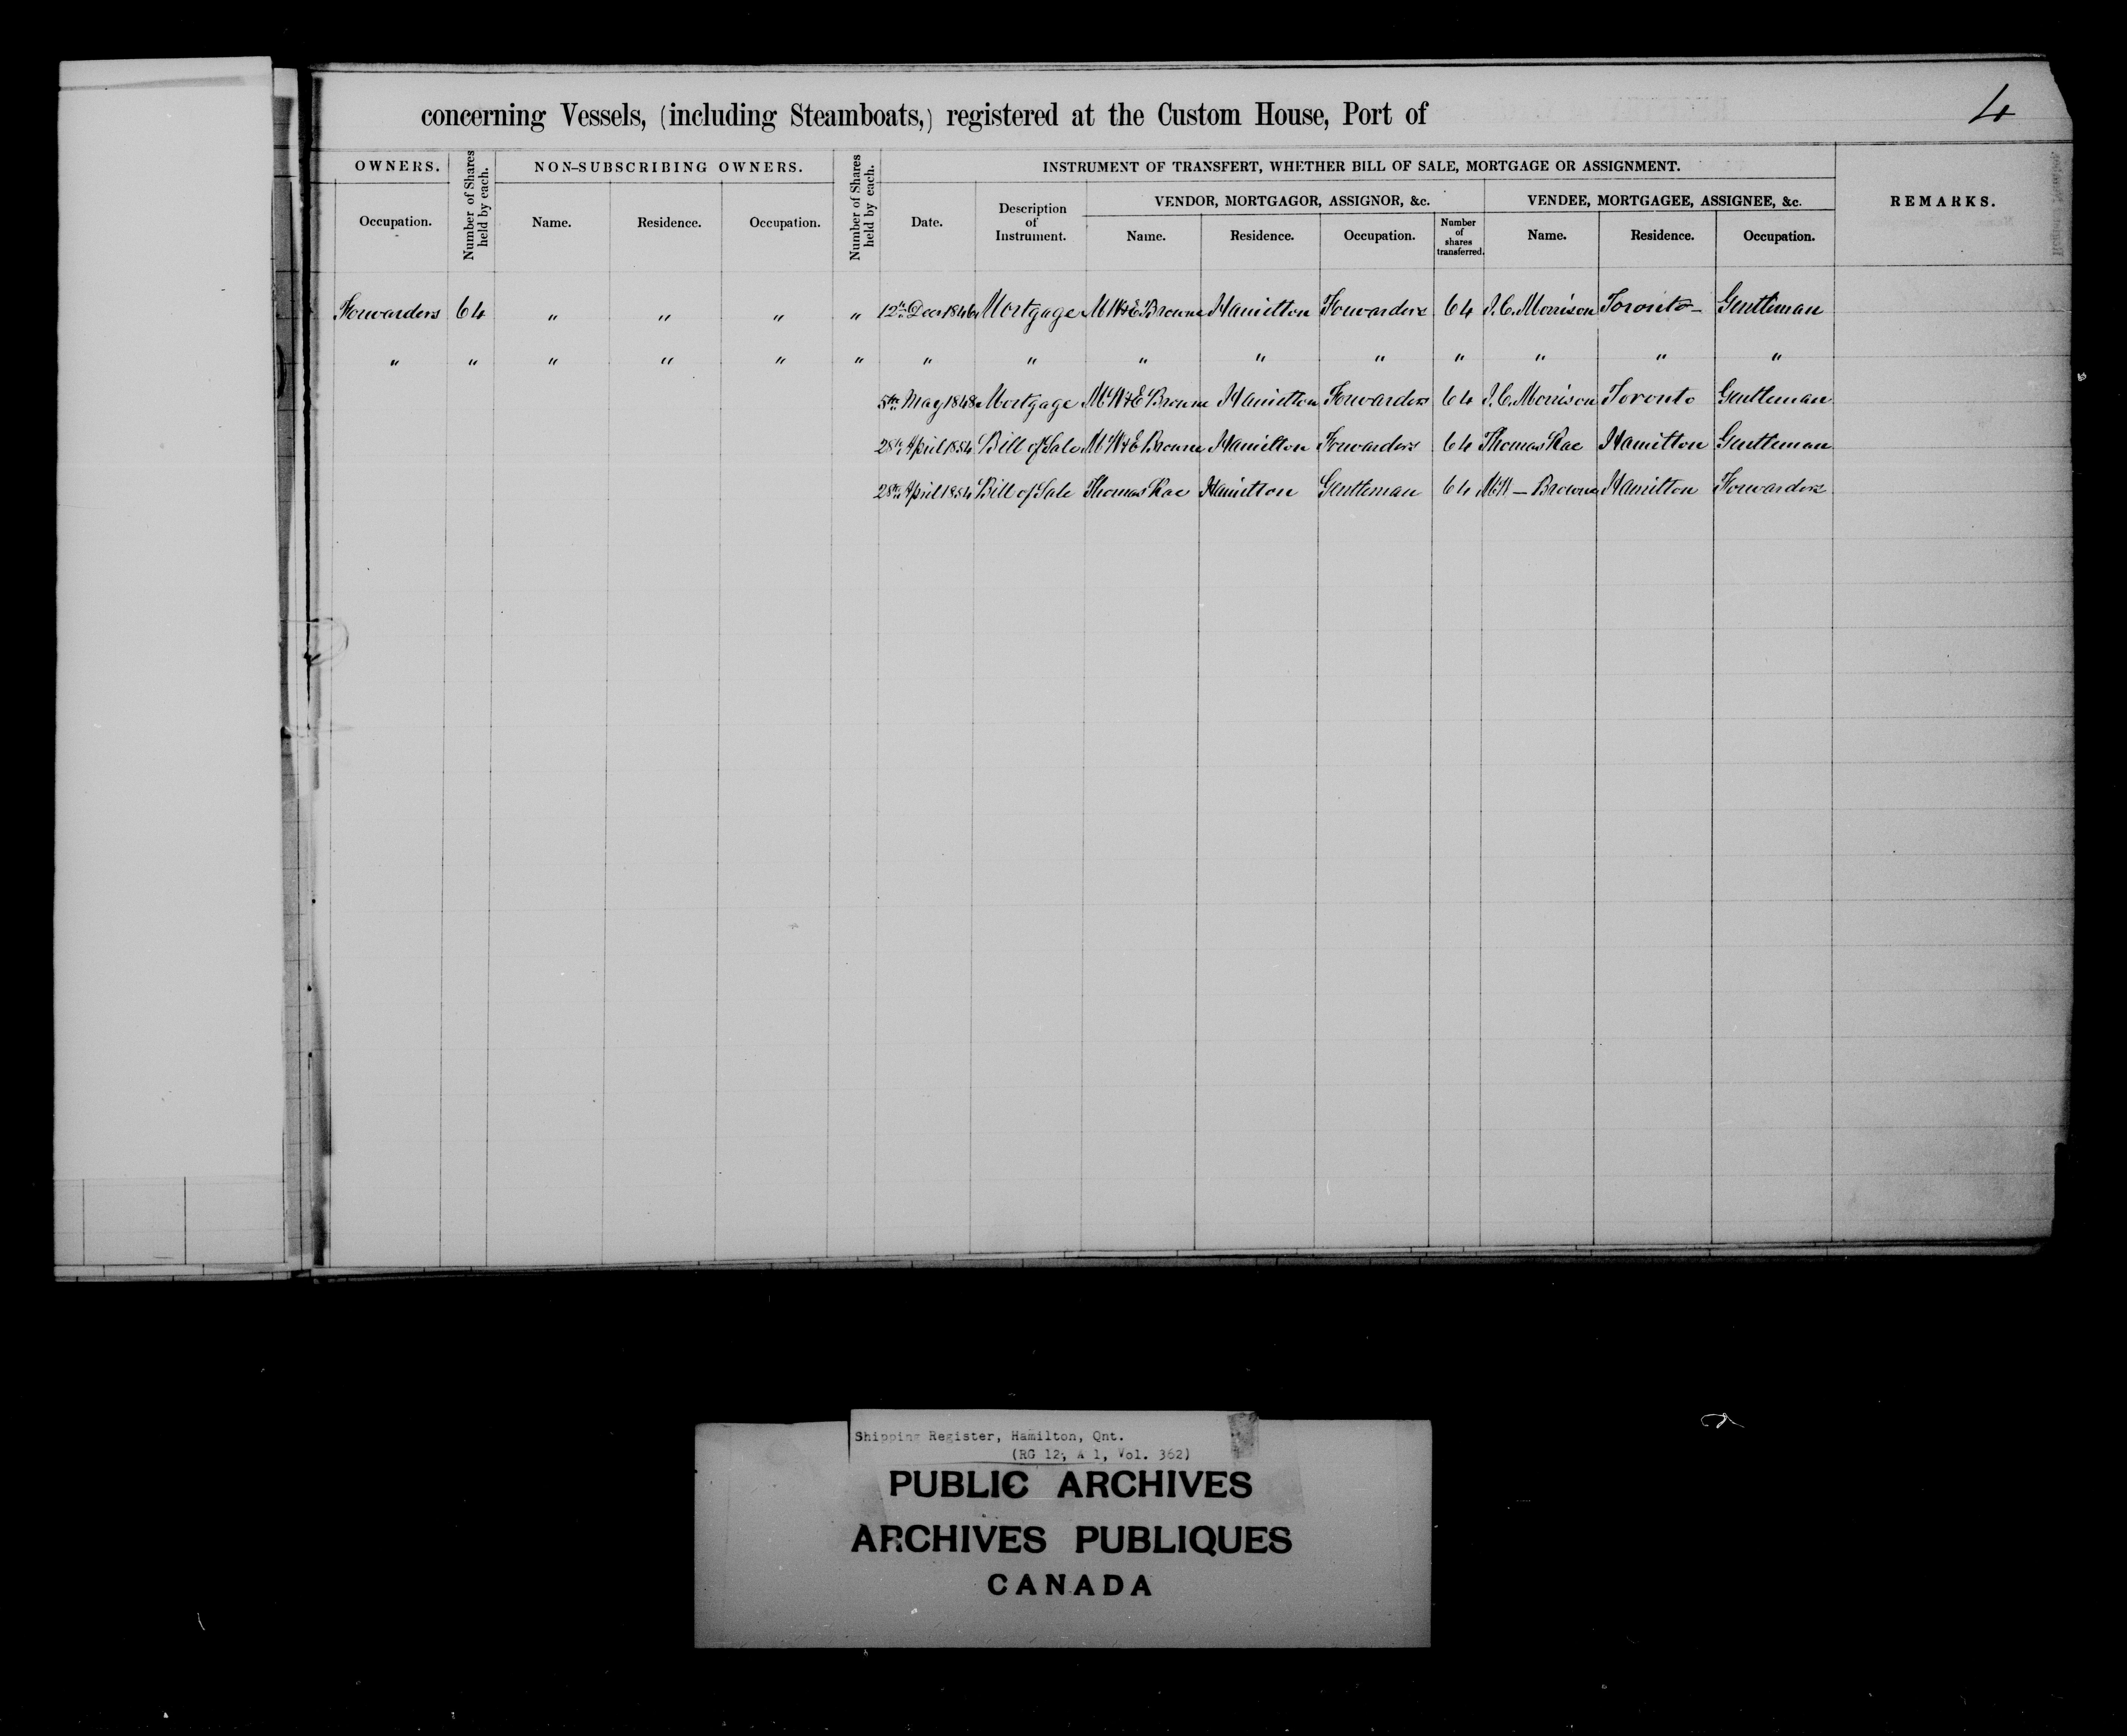 concerning Vessels, (including Steamboats,) registered at the Custom House, Port of
4
OWNERS. Number of Shares held by each. NON-SUBSCRIBING OWNERS. Number of Shares held by each. INSTRUMENT OF TRANSFERT, WHETHER BILL OF SALE, MORTGAGE OR ASSIGNMENT. REMARKS.
VENDOR, MORTGAGOR, ASSIGNOR, &c. VENDEE, MORTGAGEE, ASSIGNEE, &c.
Occupation. Name. Residence. Occupation. Date. Description of Instrument. Name. Residence. Occupation. Number of shares transferred. Name. Residence. Occupation.
Forwarders 64 " " " " 12th Decr 1846 Mortgage M W & E Browne Hamilton Forwarders 64 J. C. Morrison Toronto Gentleman
" " " " " " " " " " " " " " "
5th May 1848 Mortgage M W & E Browne Hamilton Forwarders 64 J. C. Morrison Toronto Gentleman
28th April 1854 Bill of Sale M W & E Browne Hamilton Forwarders 64 Thomas Rae Hamilton Gentleman
28th April 1854 Bill of Sale Thomas Rae Hamilton Gentleman 64 M W — Browne Hamilton Forwarders
Shipping Register, Hamilton, Qnt.
(RG 12, A 1, Vol. 362)
PUBLIC ARCHIVES
ARCHIVES PUBLIQUES
CANADA